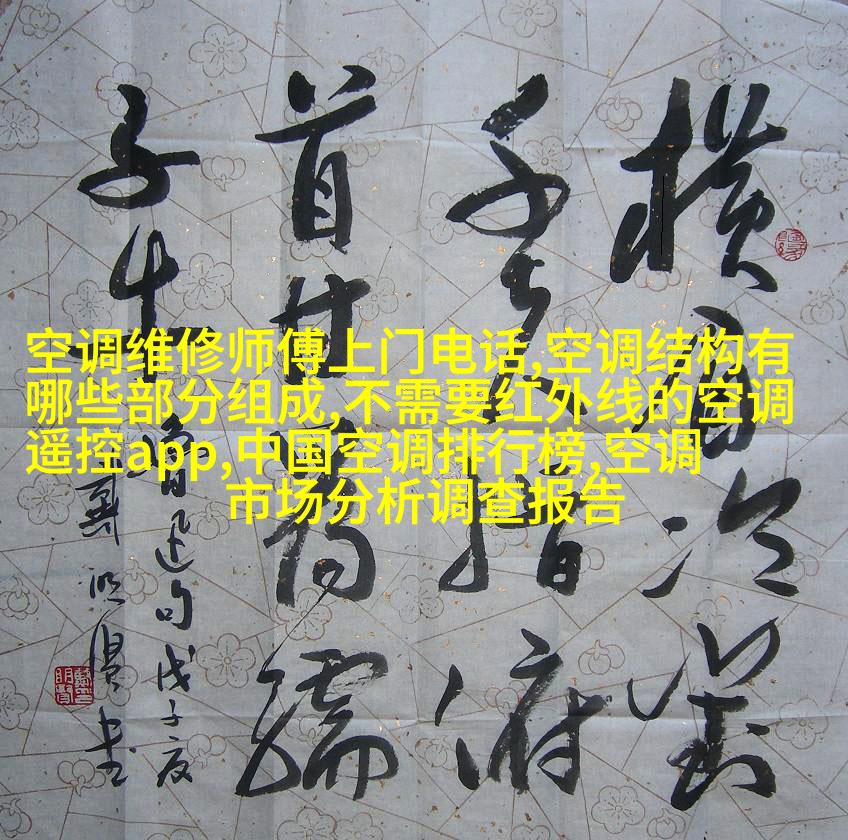 横眉冷對
千夫指俯
首甘為孺
子牛
魯迅句戊子夏
书
空调维修师傅上门电话,空调结构有
哪些部分组成,不需要红外线的空调
遥控app,中国空调排行榜,空调
市场分析调查报告